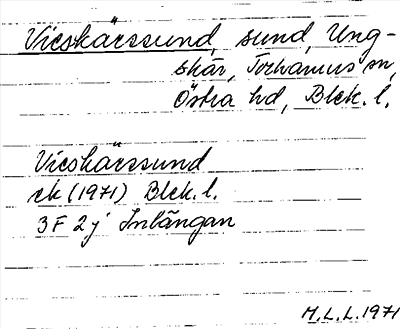 Vieskärssund, sund, Ung-
skär, Torhamns sn,
Östra hd, Blek. l.
Vieskärssund
ek (1971) Blek. l.
3F 2j Inlängan
M.L.L. 1971